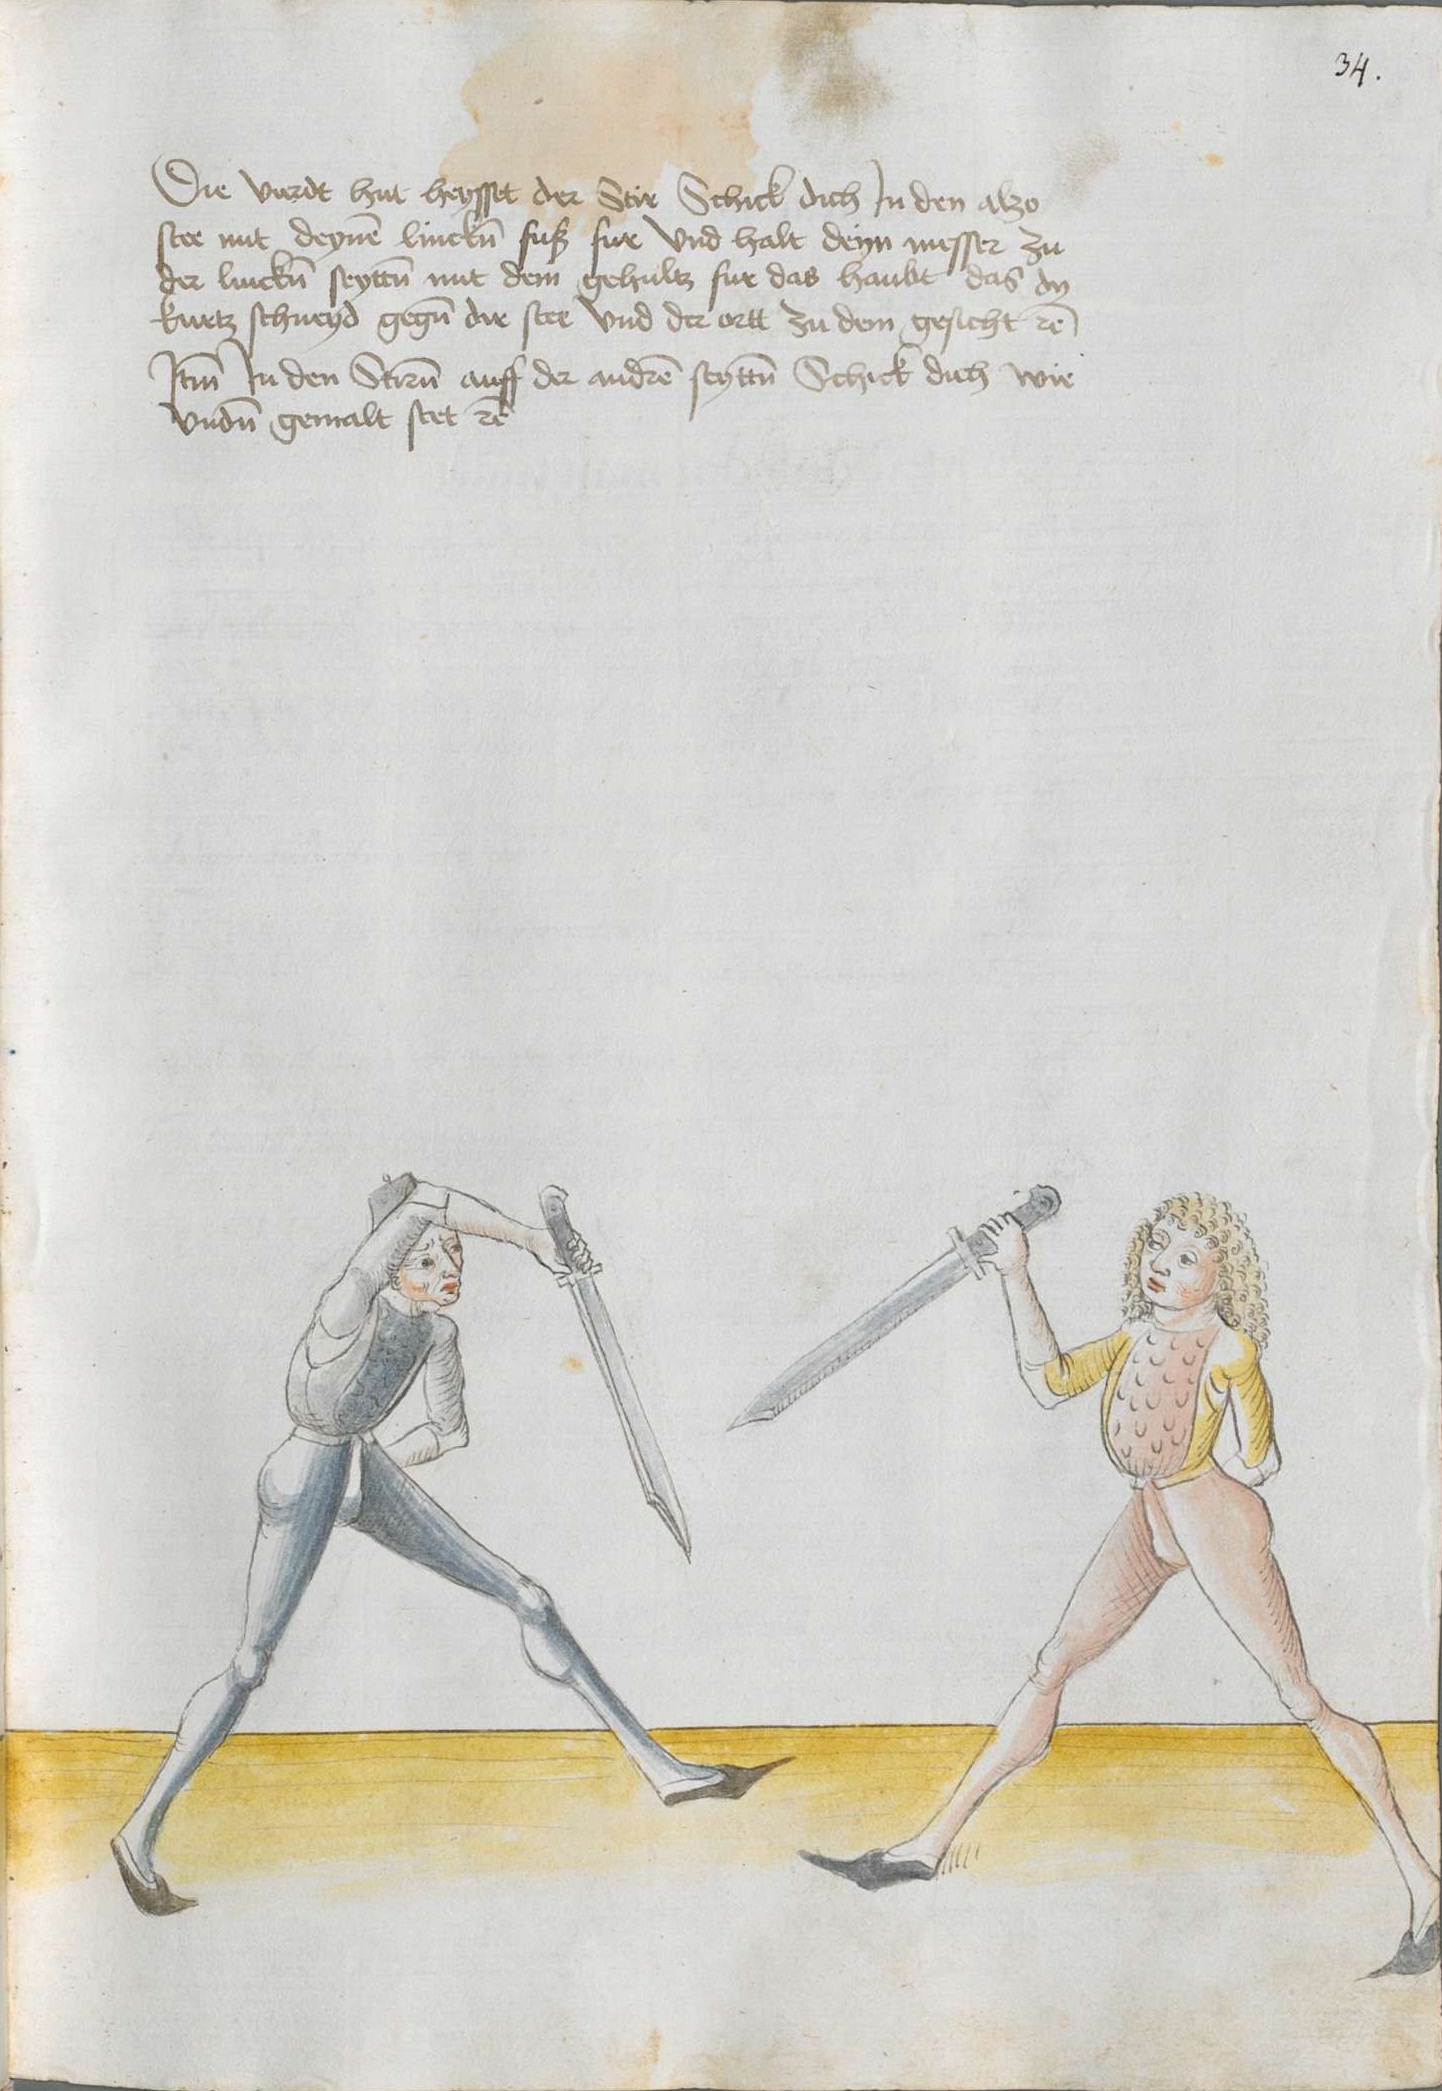 34.
Die vierdt hut heysset der Stir Schick dich In den alzo
stee mit deynē linckn̄ fuß fur vnd halt deyn messer zu
der linckn̄ seyttn̄ mit dem gehultz fur das haubt das dy
kurtz schneyd gegn̄ dir stee vnd der ortt zu dem gesicht rē
Itm̄ In den Stirn̄ auff der andrē seyttn̄ Schick dich wie
vndn̄ gemalt stet rē